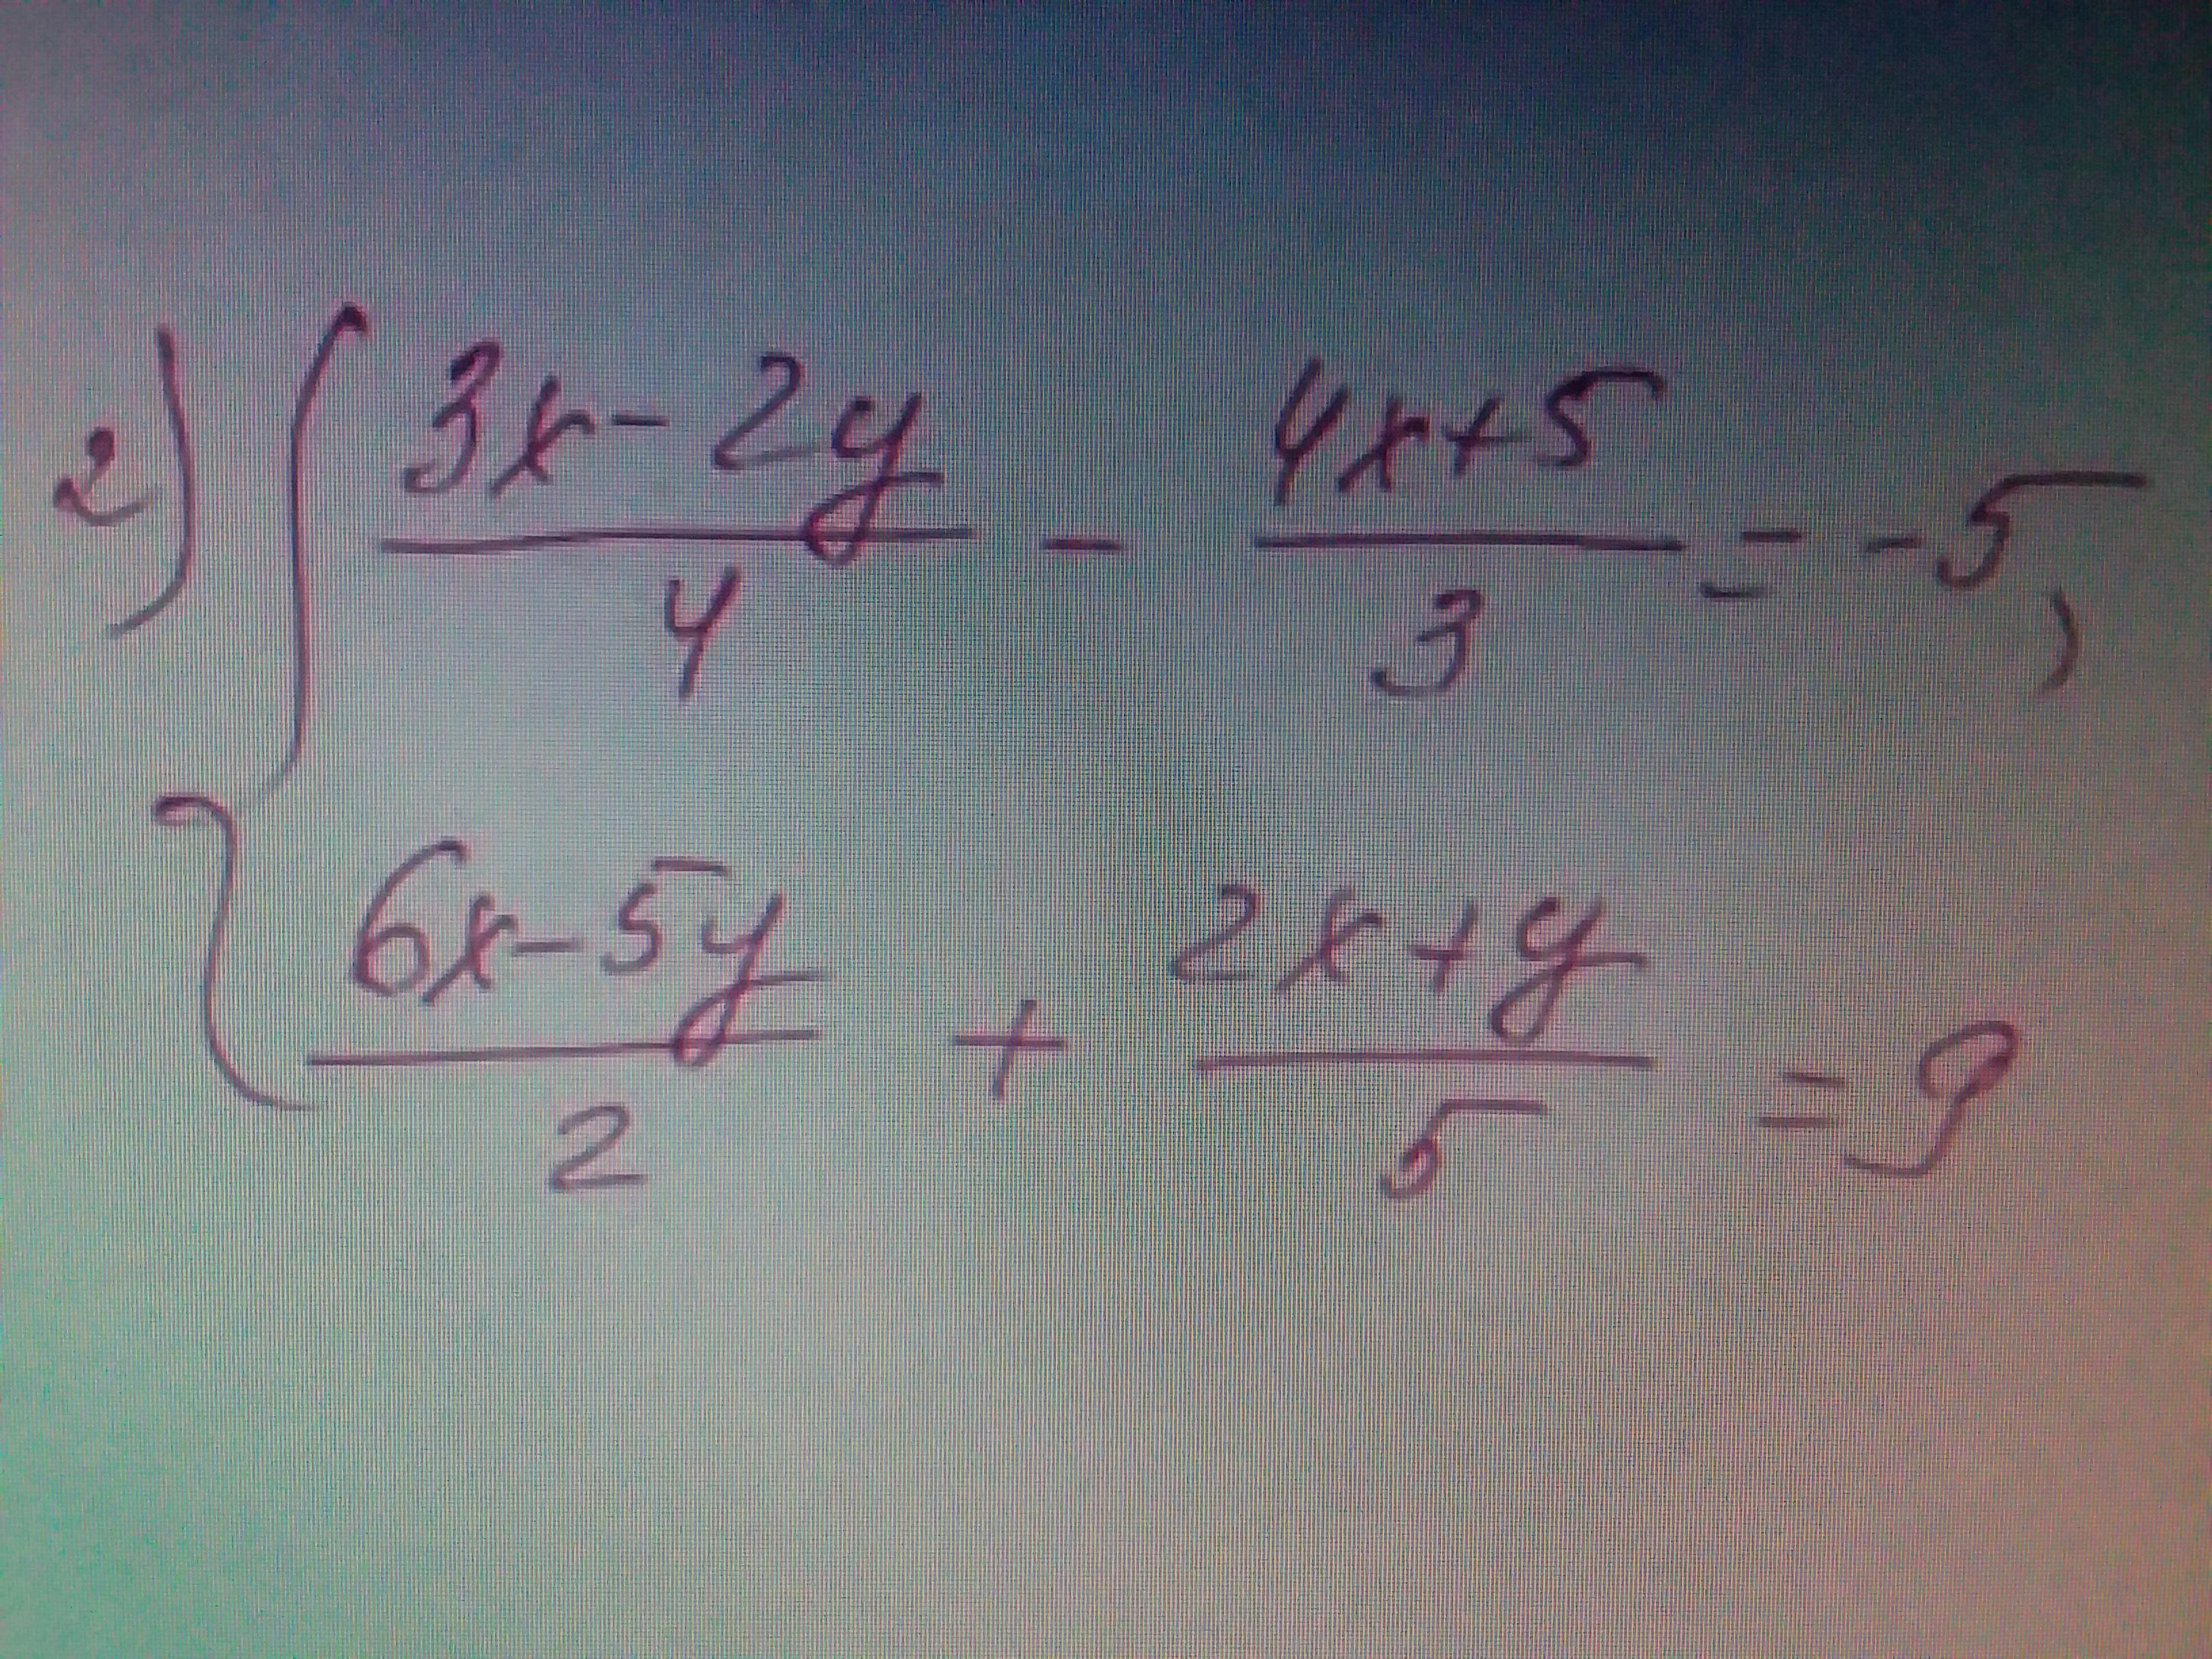 2) { (3x-2y)/4 - (4x+5)/3 = -5,
(6x-5y)/2 + (2x+y)/5 = 9